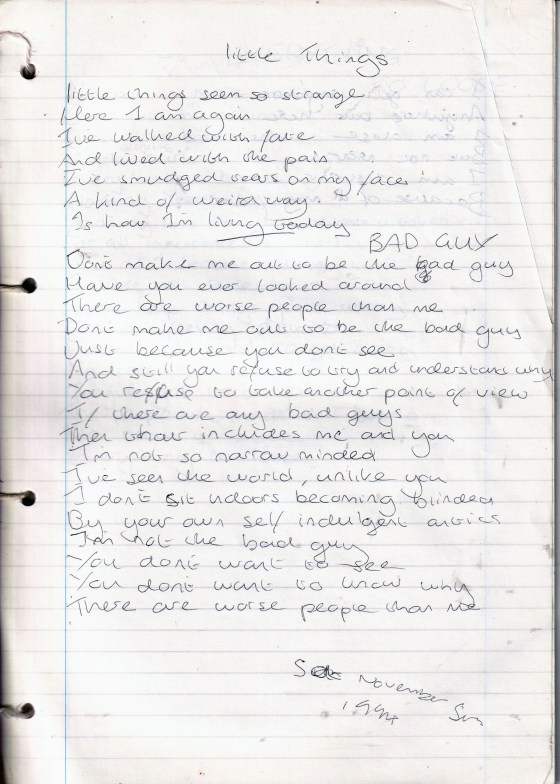 little Things
little things seem so strange
Here I am again
I've walked with fate
And lived with the pain
I've smudged tears on my face
A kind of weird way
Is how I'm living today
BAD GUY
Dont make me out to be the bad guy
Have you ever looked around
There are worse people than me
Dont make me out to be the bad guy
Just because you dont see
And still you refuse to try and understand why
You refuse to take another point of view
If there are any bad guys
Then that includes me and you
I'm not so narrow minded
I've seen the world, unlike you
I dont sit indoors becoming blinded
By your own self indulgent antics
I'm not the bad guy
You dont want to see
You dont want to know why
There are worse people than me
November
1994